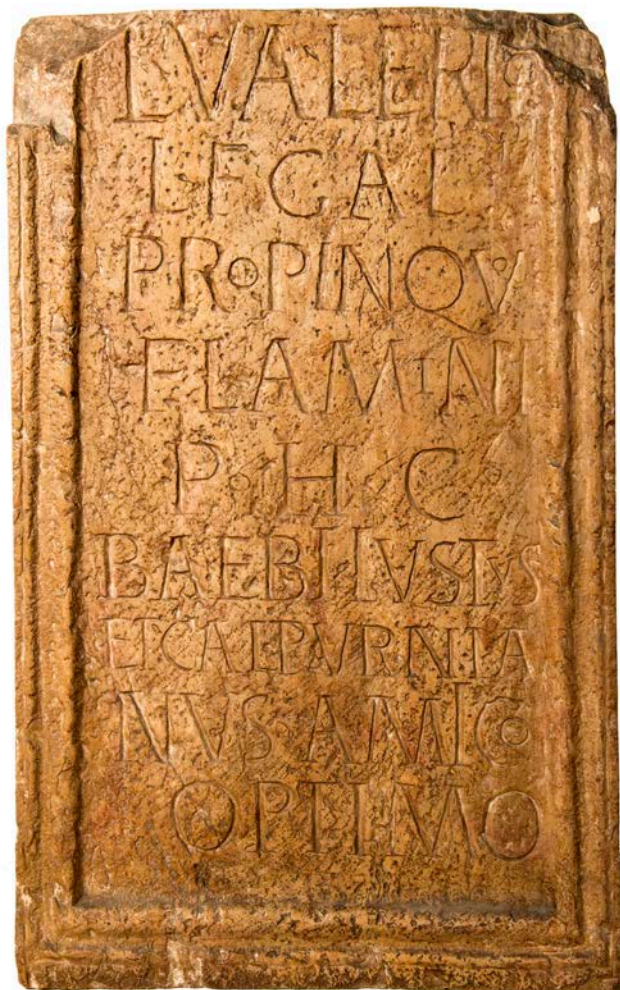 L·VALERIO
L·F·GAL
PROPINQVO
FLAMINI
P·H·C
BAEBIIIVSTVS
ETCALPVRNIA
NVS·AMICO
OPTIMO